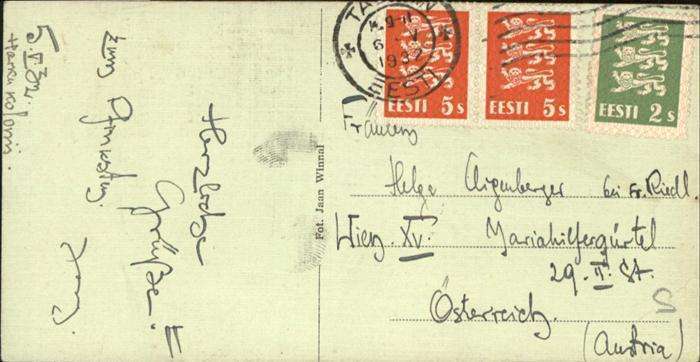 5.V.32.
zum Pfingsten.
Herzliche
Grüße!!
Fot. Jaan Winnal
TALLINN
6 V
1932
EESTI
EESTI 5 s
EESTI 5 s
EESTI 2 s
Helga Aigenberger bei Fr. Riedl
Wien XV. Mariahilfergürtel
29. II. St.
Österreich
(Austria)
S